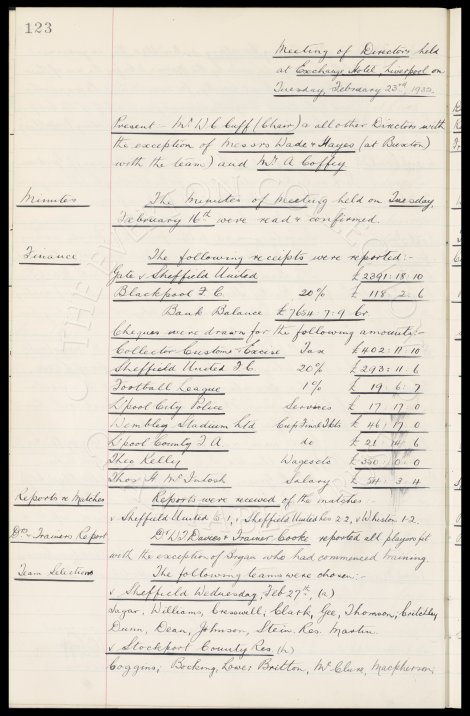 123
Meeting of Directors held
at Exchange Hotel, Liverpool on
Tuesday, February 23rd 1932.
Present - Mr W C Cuff (Chair) & all other Directors with
the exception of Messrs Wade & Hayes (at Buxton)
with the team) and Mr A Coffey
Minutes The Minutes of Meeting held on Tuesday
February 16th were read & confirmed.
Finance The following receipts were reported:-
Gate v Sheffield United £2391:18:10
Blackpool F.C. 20% £ 118:2:6
Bank Balance £7654:7:9 Cr.
Cheques were drawn for the following amounts:-
Collector Customs & Excise Tax £402:11:10
Sheffield United F.C. 20% £293:11:6
Football League 1% £ 19:6:7
L'pool City Police Services £ 17:17:0
Wembley Stadium Ltd Cup Final Tkts £ 46:17:0
L'pool County F A do £ 21:14:6
Theo Kelly Wages etc £350:0:0
Thos H McIntosh Salary £ 54:3:4
Reports re Matches Reports were received of the matches -
v Sheffield United 5-1, v Sheffield United Res 2-2, v Whiston 1-2.
Drs & Trainers Report Dr W J Davies & Trainer Cooke reported all players fit
with the exception of who had commenced training.
Team Selections The following teams were chosen:-
v Sheffield Wednesday, Feb 27th (a)
Sagar, Williams, Cresswell, Clark, Gee, Thomson, Critchley
Dunn, Dean, Johnson, Stein. Res. Martin.
v Stockport County Res (h)
Coggins; Bocking, Lowe; Britton, McClure, Macpherson;